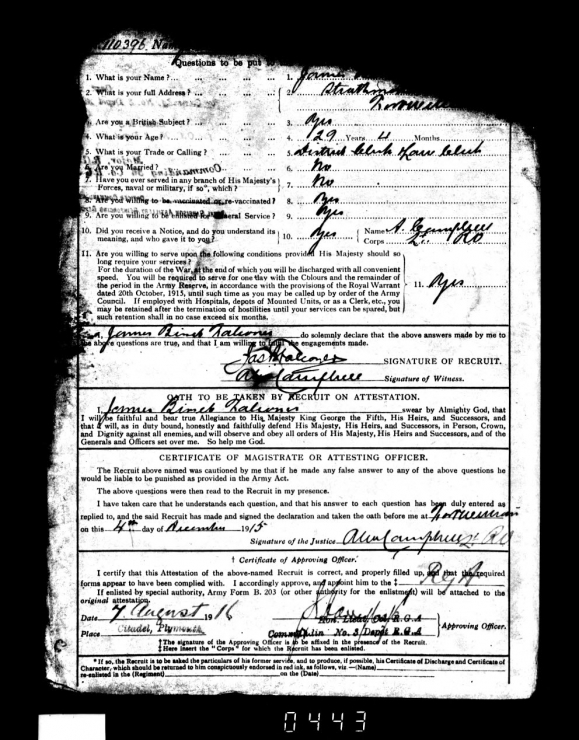 110396
Questions to be put to
1. What is your Name? ... ... ... ... 1. James
2. What is your full Address? ... ... ... 2.
3. Are you a British Subject? ... ... ... 3. Yes
4. What is your Age? ... ... ... ... 4. 29 Years 4 Months
5. What is your Trade or Calling? ... ... 5. District Clerk Law Clerk
6. Are you Married? ... ... ... 6. No
7. Have you ever served in any branch of His Majesty's
Forces, naval or military, if so*, which? 7. No
8. Are you willing to be vaccinated or re-vaccinated? 8. Yes
9. Are you willing to be enlisted for General Service? 9. Yes
10. Did you receive a Notice, and do you understand its
meaning, and who gave it to you? 10. Yes Name A. Campbell
Corps
11. Are you willing to serve upon the following conditions provided His Majesty should so
long require your services?
For the duration of the War, at the end of which you will be discharged with all convenient
speed. You will be required to serve for one day with the Colours and the remainder of
the period in the Army Reserve, in accordance with the provisions of the Royal Warrant
dated 20th October, 1915, until such time as you may be called up by order of the Army
Council. If employed with Hospitals, depots of Mounted Units, or as a Clerk, etc., you
may be retained after the termination of hostilities until your services can be spared, but
such retention shall in no case exceed six months.
11. Yes
I, James Falconer do solemnly declare that the above answers made by me to
the above questions are true, and that I am willing to fulfil the engagements made.
Jas Falconer SIGNATURE OF RECRUIT.
Alex Campbell Signature of Witness.
OATH TO BE TAKEN BY RECRUIT ON ATTESTATION.
I, James Falconer swear by Almighty God, that
I will be faithful and bear true Allegiance to His Majesty King George the Fifth, His Heirs, and Successors, and
that I will, as in duty bound, honestly and faithfully defend His Majesty, His Heirs, and Successors, in Person, Crown,
and Dignity against all enemies, and will observe and obey all orders of His Majesty, His Heirs and Successors, and of the
Generals and Officers set over me. So help me God.
CERTIFICATE OF MAGISTRATE OR ATTESTING OFFICER.
The Recruit above named was cautioned by me that if he made any false answer to any of the above questions he
would be liable to be punished as provided in the Army Act.
The above questions were then read to the Recruit in my presence.
I have taken care that he understands each question, and that his answer to each question has been duly entered as
replied to, and the said Recruit has made and signed the declaration and taken the oath before me at
on this 4th day of December 1915
Signature of the Justice Alex Campbell RO
† Certificate of Approving Officer.
I certify that this Attestation of the above-named Recruit is correct, and properly filled up, and that the required
forms appear to have been complied with. I accordingly approve, and appoint him to the ‡ RGA
If enlisted by special authority, Army Form B. 203 (or other authority for the enlistment) will be attached to the
original attestation.
Date 7 August 1916
Place Citadel, Plymouth
Hon. Lieut/Col/R.G.A
Commanding No. 3/Depôt R.G.A Approving Officer.
† The signature of the Approving Officer is to be affixed in the presence of the Recruit.
‡ Here insert the "Corps" for which the Recruit has been enlisted.
* If so, the Recruit is to be asked the particulars of his former service, and to produce, if possible, his Certificate of Discharge and Certificate of
Character, which should be returned to him conspicuously endorsed in red ink, as follows, viz.—(Name)
re-enlisted in the (Regiment) on the (Date)
0443